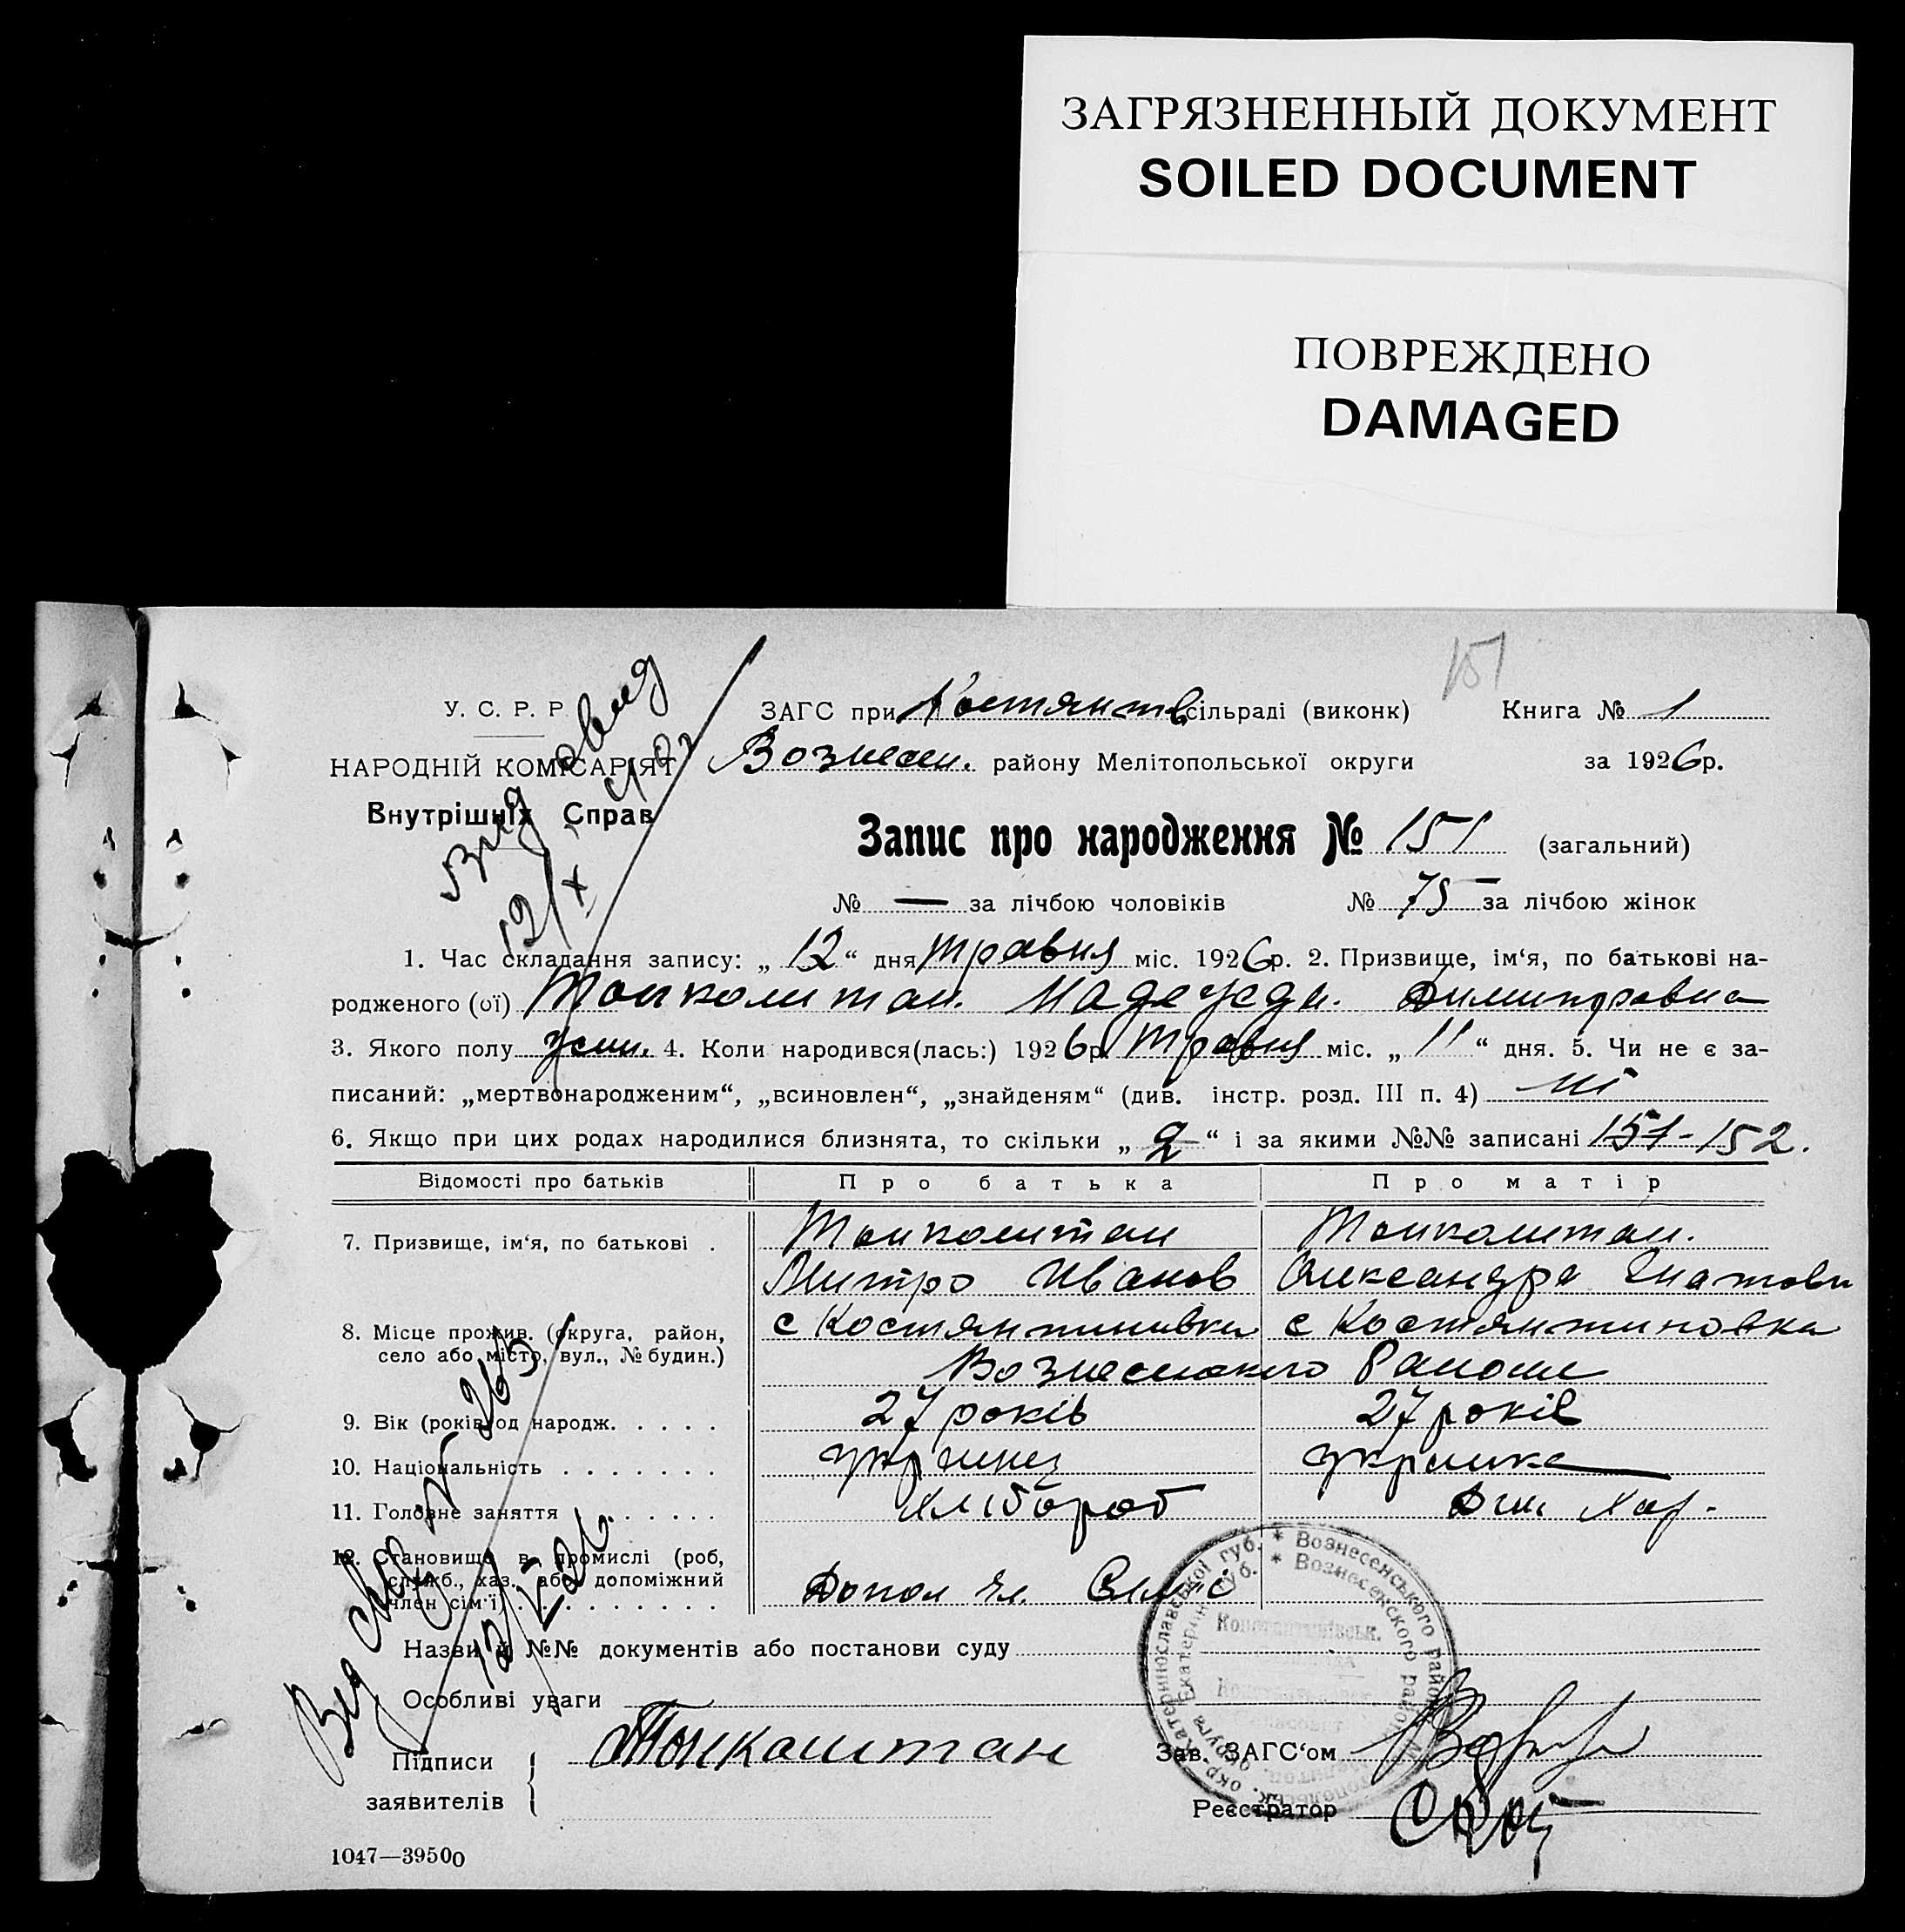 ЗАГРЯЗНЕННЫЙ ДОКУМЕНТ
SOILED DOCUMENT
ПОВРЕЖДЕНО
DAMAGED
151
У. С. Р. Р.
НАРОДНІЙ КОМІСАРІЯТ
Внутрішніх Справ
ЗАГС при Костянтв сільраді (виконк) Книга № 1
Вознесен. району Мелітопольської округи за 1926р.
Запис про народження № 151 (загальний)
№ — за лічбою чоловіків № 75 за лічбою жінок
1. Час складання запису: „ 12 “ дня травня міс. 1926р. 2. Призвище, ім‘я, по батькові на-
родженого (ої) Тонкоштан. Надежда. Димитровна
3. Якого полу жен. 4. Коли народився(лась:) 1926р. травня міс. „ 11 “ дня. 5. Чи не є за-
писаний: „мертвонародженим“, „всиновлен“, „знайденям“ (див. інстр. розд. III п. 4) ні
6. Якщо при цих родах народилися близнята, то скільки „ 2 “ і за якими №№ записані 151-152.
Відомості про батьків Про батька Про матір
7. Призвище, ім‘я, по батькові . Тонкоштан Тонкоштан.
Митро Иванов Олександра Гнатовн
8. Місце прожив. (округа, район, с Костянтинивка с Костянтиновка
село або місто, вул., № будин.) Вознесенского Району
9. Вік (років од народж. . . . . 27 років 27 років
10. Національність . . . . . . . українец українка
11. Головне заняття . . . . . . Хлібороб Дом Хаз.
12. Становище в промислі (роб,
служб., хаз. або допоміжний
член сім‘ї) . . . . . . . . . . Допол чл. Семьї
Назви й №№ документів або постанови суду
Особливі уваги
Підписи
заявителів
Тонкоштан
Зав. ЗАГС‘ом
Реєстратор
Вознесенського району
Вознесенского района
Катеринославської губ.
Константинівськ.
1047—39500